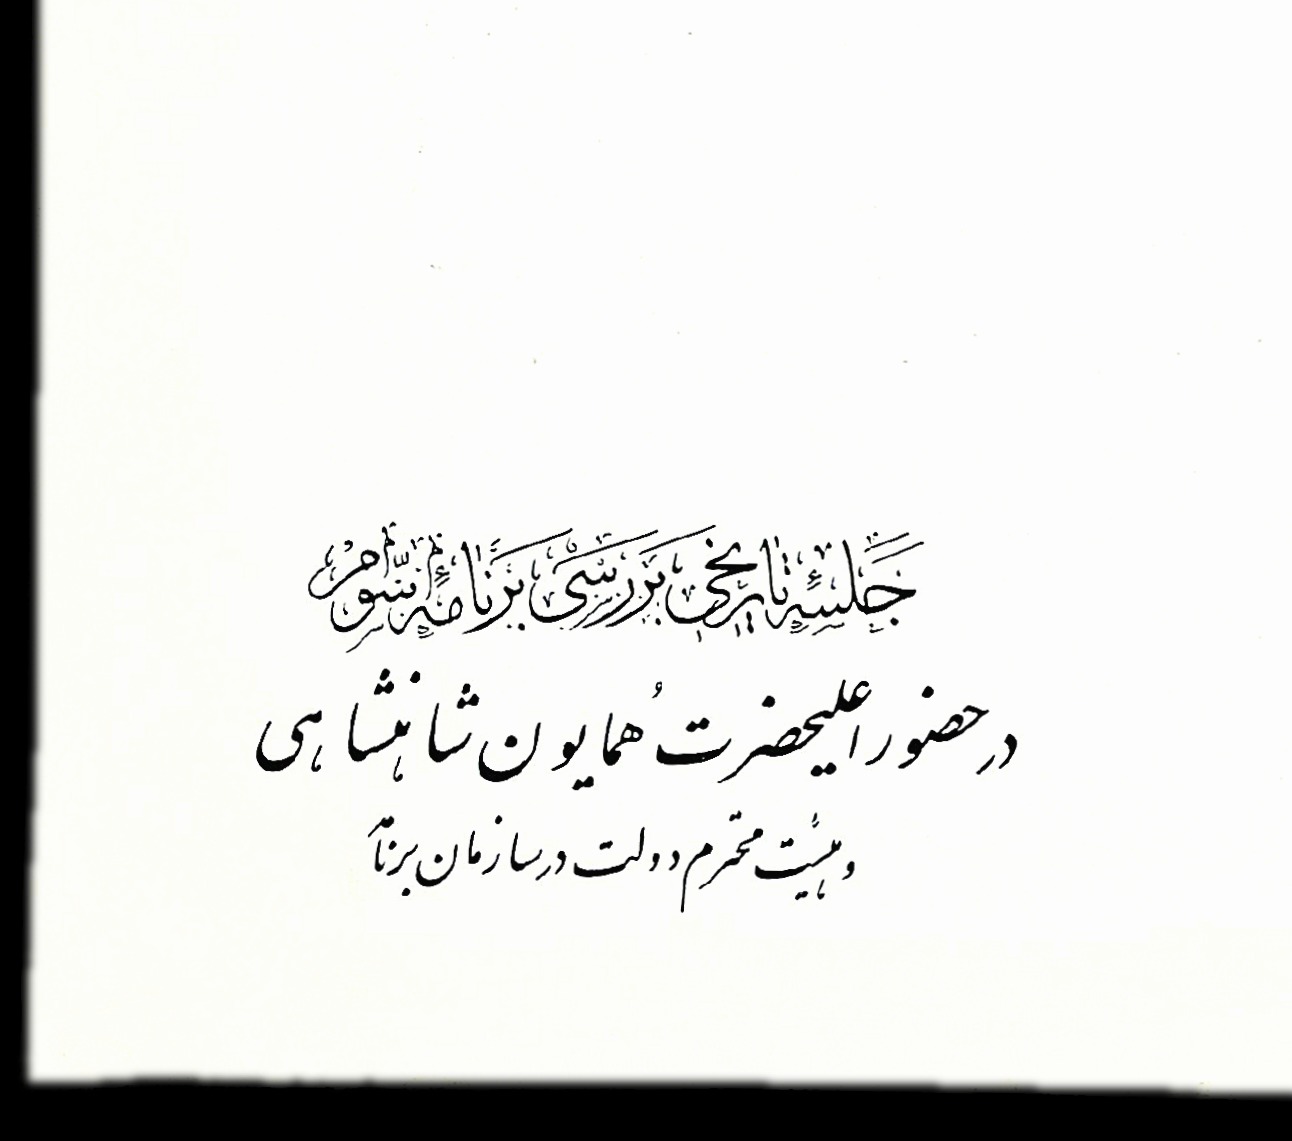 جلسهٔ تاریخی بررسی برنامهٔ سوم
در حضور اعلیحضرت همایون شاهنشاهی
و هیئت محترم دولت در سازمان برنامه